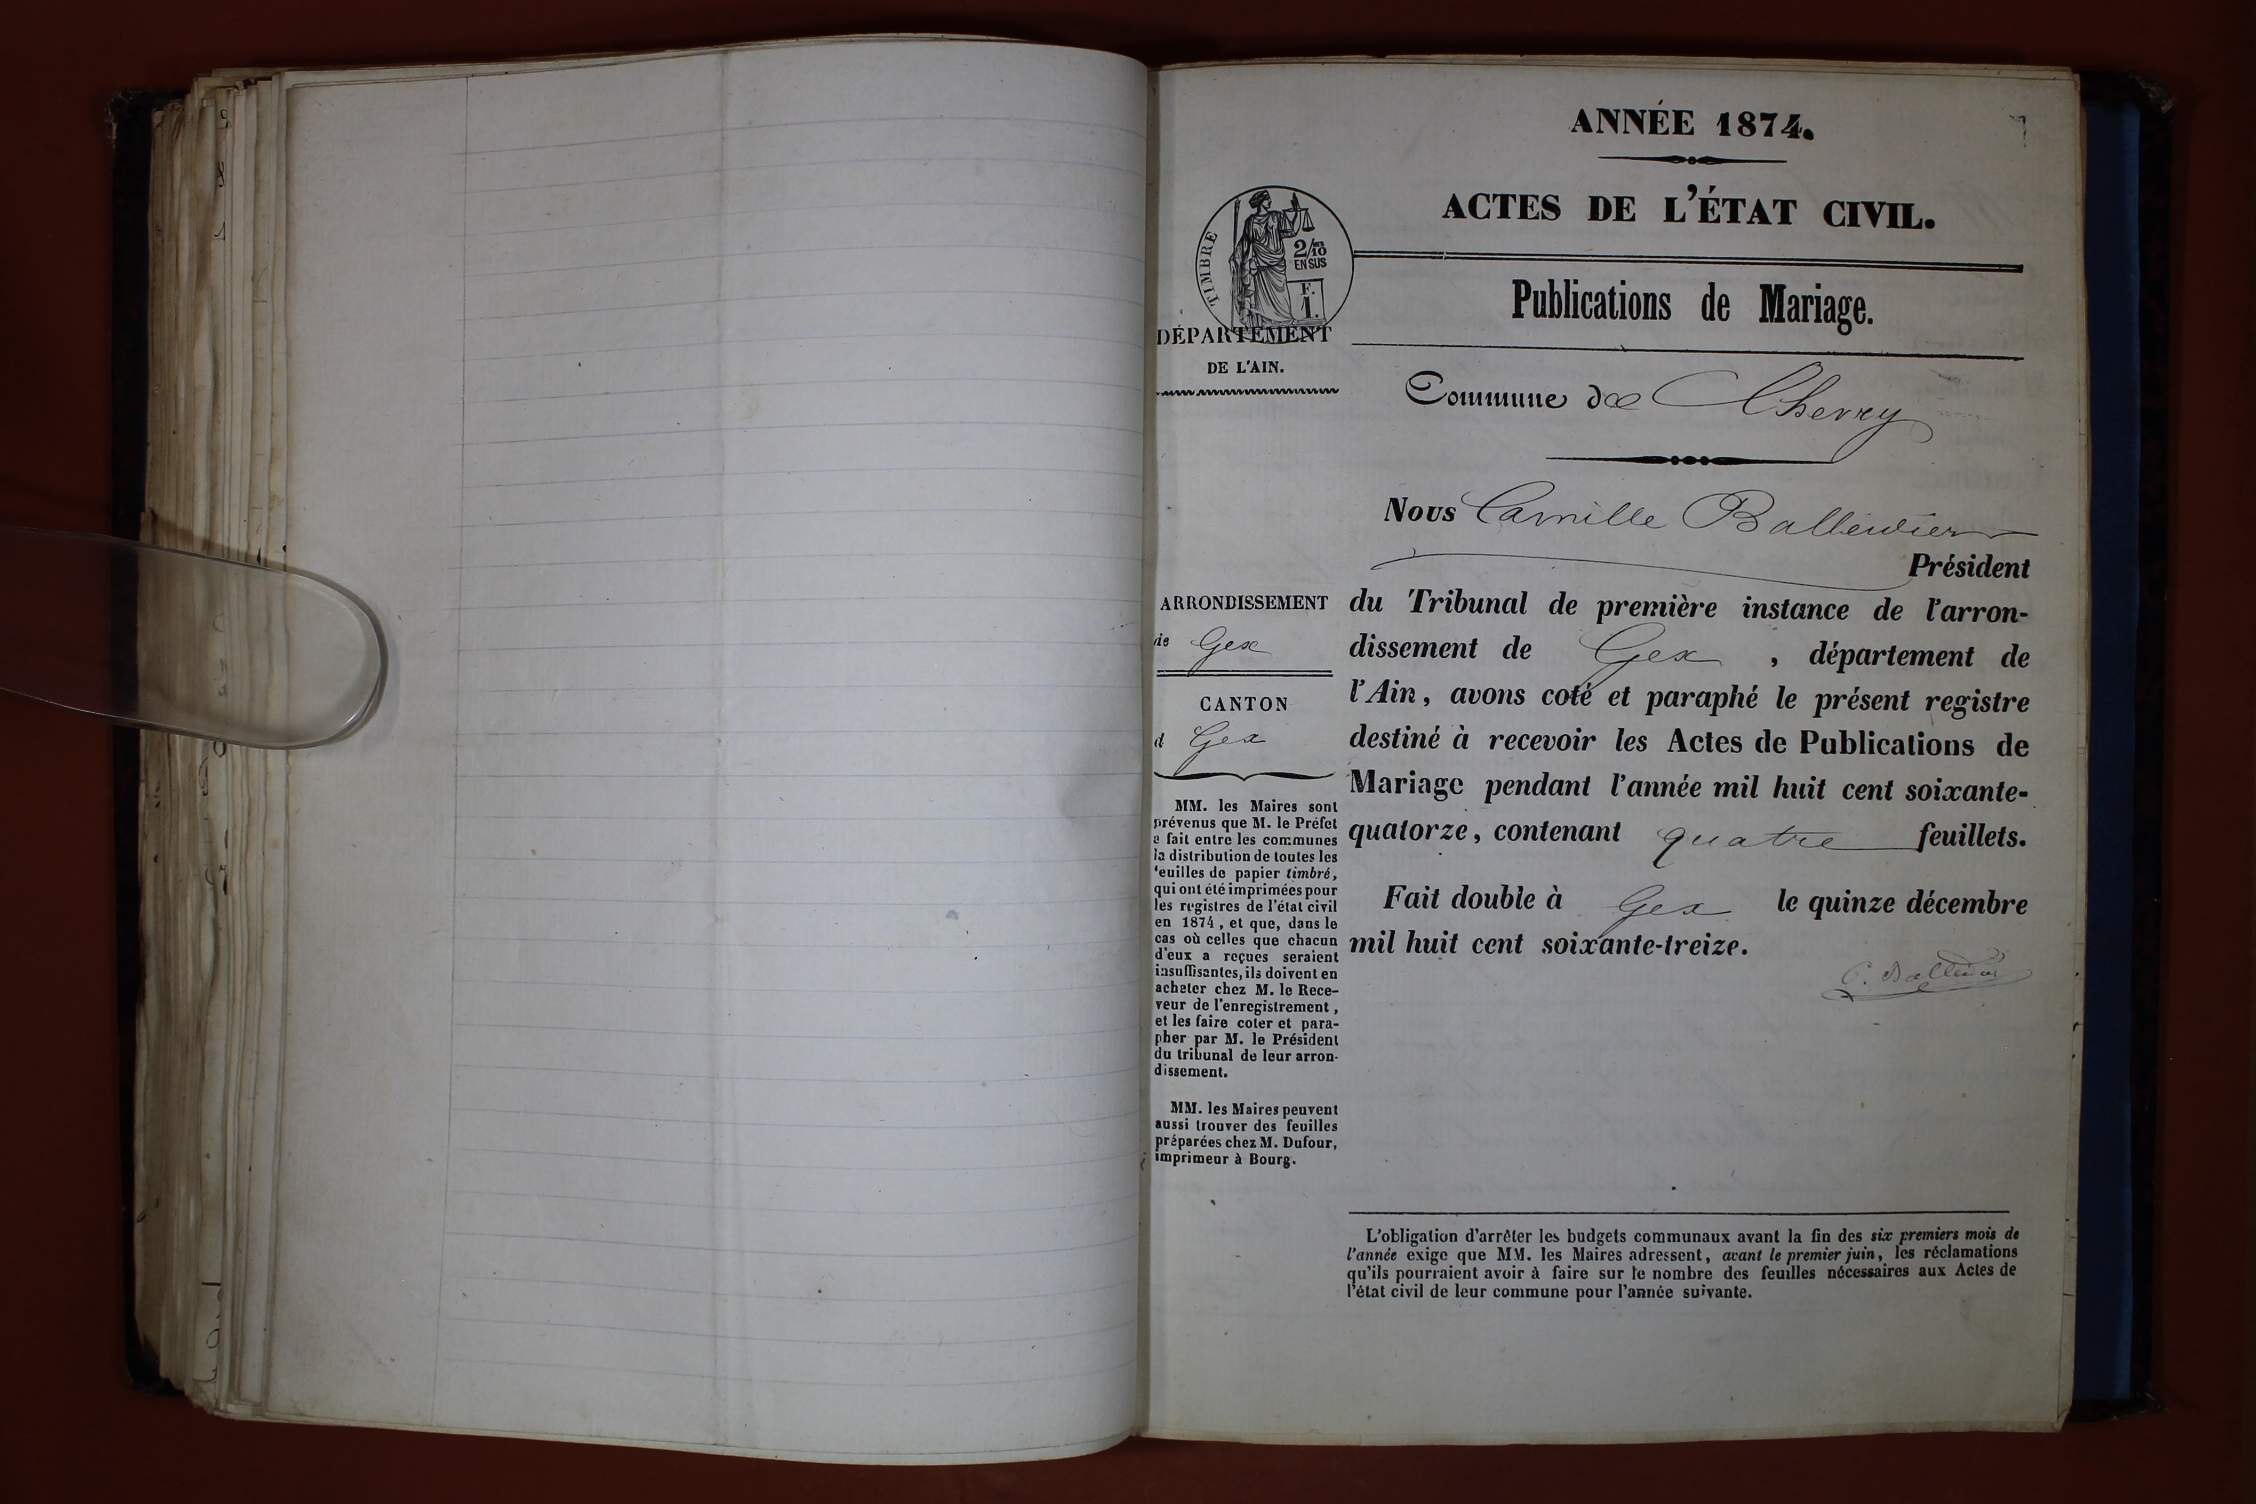 ANNÉE 1874.
ACTES DE L'ÉTAT CIVIL.
Publications de Mariage.
Commune de Chevry
Nous Camille Balleidier
Président
du Tribunal de première instance de l'arron-
dissement de Gex, département de
l'Ain, avons coté et paraphé le présent registre
destiné à recevoir les Actes de Publications de
Mariage pendant l'année mil huit cent soixante-
quatorze, contenant quatre feuillets.
Fait double à Gex le quinze décembre
mil huit cent soixante-treize.
C. Balleidier
TIMBRE
2/10
EN SUS
F.
1.
DÉPARTEMENT
DE L'AIN.
ARRONDISSEMENT
de Gex
CANTON
d Gex
MM. les Maires sont
prévenus que M. le Préfet
a fait entre les communes
la distribution de toutes les
feuilles de papier timbré,
qui ont été imprimées pour
les registres de l'état civil
en 1874, et que, dans le
cas où celles que chacun
d'eux a reçues seraient
insuffisantes, ils doivent en
acheter chez M. le Rece-
veur de l'enregistrement,
et les faire coter et para-
pher par M. le Président
du tribunal de leur arron-
dissement.
MM. les Maires peuvent
aussi trouver des feuilles
préparées chez M. Dufour,
imprimeur à Bourg.
L'obligation d'arrêter les budgets communaux avant la fin des six premiers mois de
l'année exige que MM. les Maires adressent, avant le premier juin, les réclamations
qu'ils pourraient avoir à faire sur le nombre des feuilles nécessaires aux Actes de
l'état civil de leur commune pour l'année suivante.